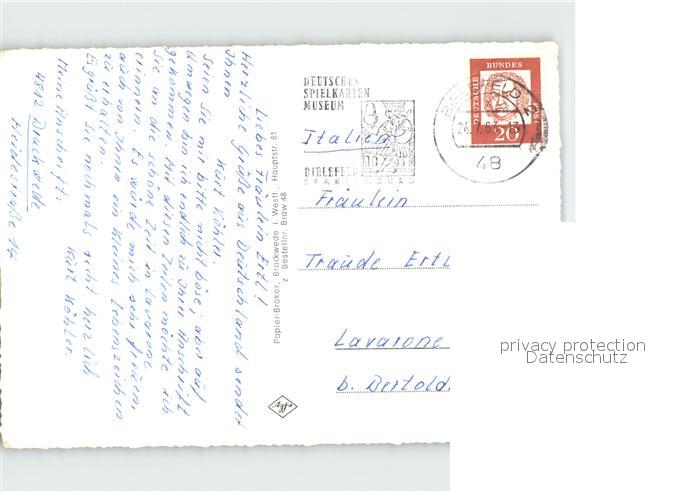 Liebes Fräulein Ertl!
Herzliche Grüße aus Deutschland sendet
Ihnen Kurt Köhler.
Seien Sie mir bitte nicht böse, aber auf
Umwegen bin ich endlich zu Ihrer Anschrift
gekommen. Mit diesen Zeilen möchte ich
Sie an die schöne Zeit in Lavarone
erinnern. Es würde mich sehr freuen,
auch von Ihnen ein kleines Lebenszeichen
zu erhalten.
Es grüßt Sie nochmals recht herzlich
Kurt Köhler.
Meine Anschrift:
4812 Brackwede
Heidestraße 14
Papier-Bröker, Brackwede i. Westf., Hauptstr. 81
z Bestellnr. Braw 48
Agfa
DEUTSCHES
SPIELKARTEN
MUSEUM
BIELEFELD
SPARRENBURG
BIELEFELD 2
24.7.63-13
48
DEUTSCHE BUNDESPOST
20
Italien
Fräulein
Traude Ertl
Lavarone
b. Bertold
privacy protection
Datenschutz